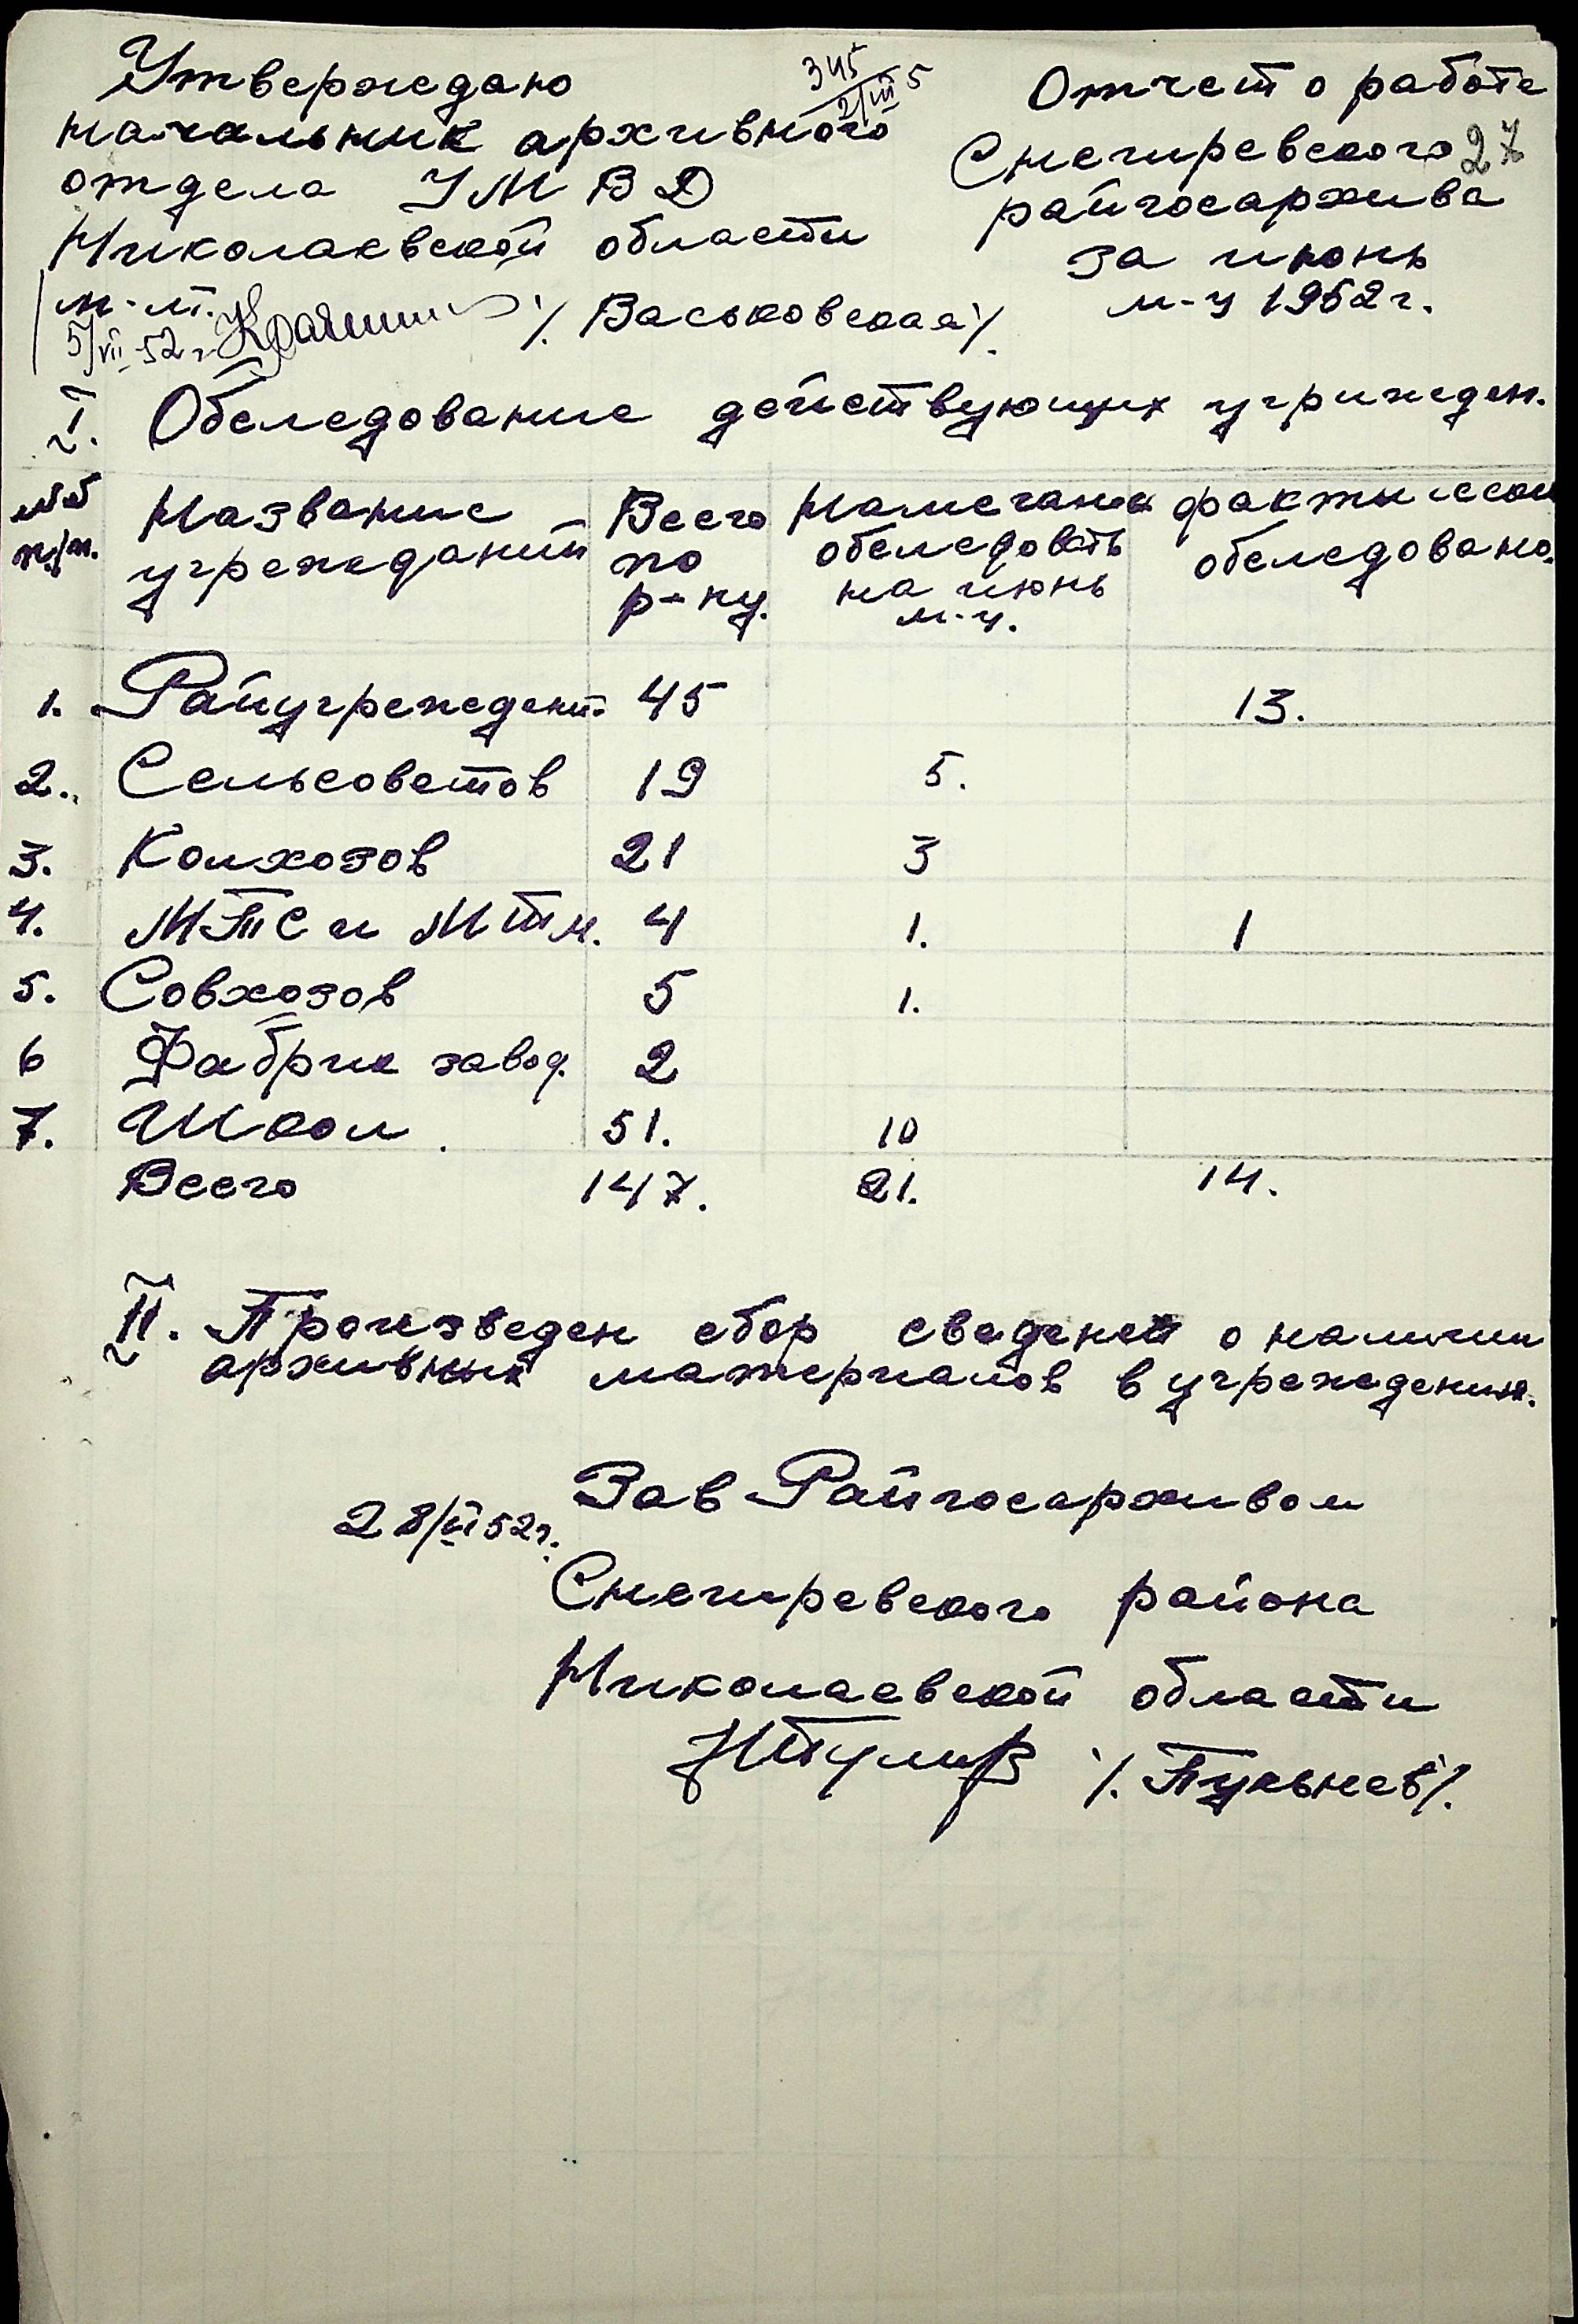 Утверждаю
начальник архивного
отдела УМВД
Николаевской области
5/VII-52 г.
/. Васьковская /.
345
Отчет о работе
Снегиревского 27
райгосархива
за июнь
м-ц 1952 г.
I. Обследование действующих учрижден.
№№ п/п. Название учреждений Всего по р-ну. Намечаны обследовать на июнь м-ц. фактически обследовано.
1. Райучрежден. 45 13.
2. Сельсоветов 19 5.
3. Колхозов 21 3
4. МТС и МТМ. 4 1. 1
5. Совхозов 5 1.
6 Фабрик завод. 2
7. Школ. 51. 10
Всего 147. 21. 14.
II. Произведен сбор сведений о наличии
архивных материалов в учреждениях.
Зав Райгосархивом
28/VI 52 г.
Снегиревского района
Николаевской области